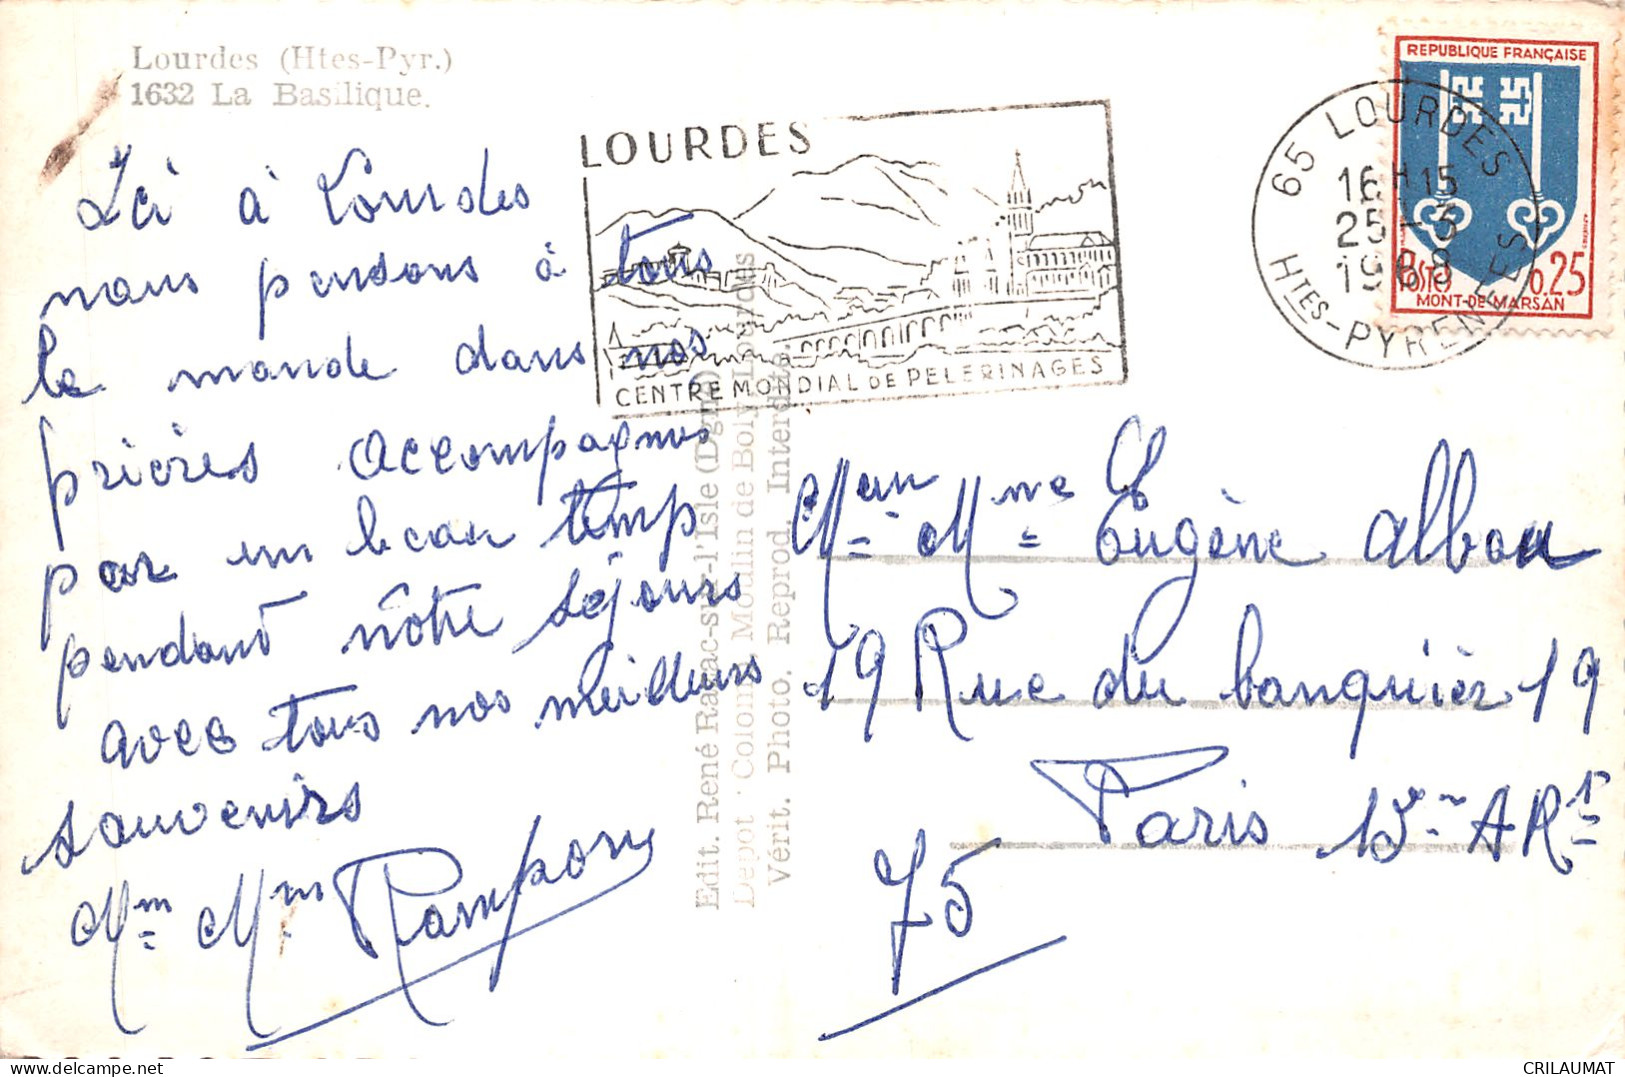 Lourdes (Htes-Pyr.)
1632 La Basilique.
Ici à Lourdes
nous pensons à tous
le monde dans nos
prières accompagnés
par un beau temp
pendant nôtre séjours
avec tous nos meilleurs
souvenirs
Mm Mm Rampon
LOURDES
CENTRE MONDIAL DE PELERINAGES
65 LOURDES
16H15
25-3
1968
HTES-PYRENEES
REPUBLIQUE FRANÇAISE
POSTES 0.25
MONT-DE-MARSAN
Edit. René
-sur-l'Isle (Dgne)
Dépôt : Colonna, Moulin de Boly, Lourdes
Vérit. Photo. Reprod. Interdite.
Mme Eugène Albou
19 Rue du banquièr 19
Paris 13e ARt
75
CRILAUMAT